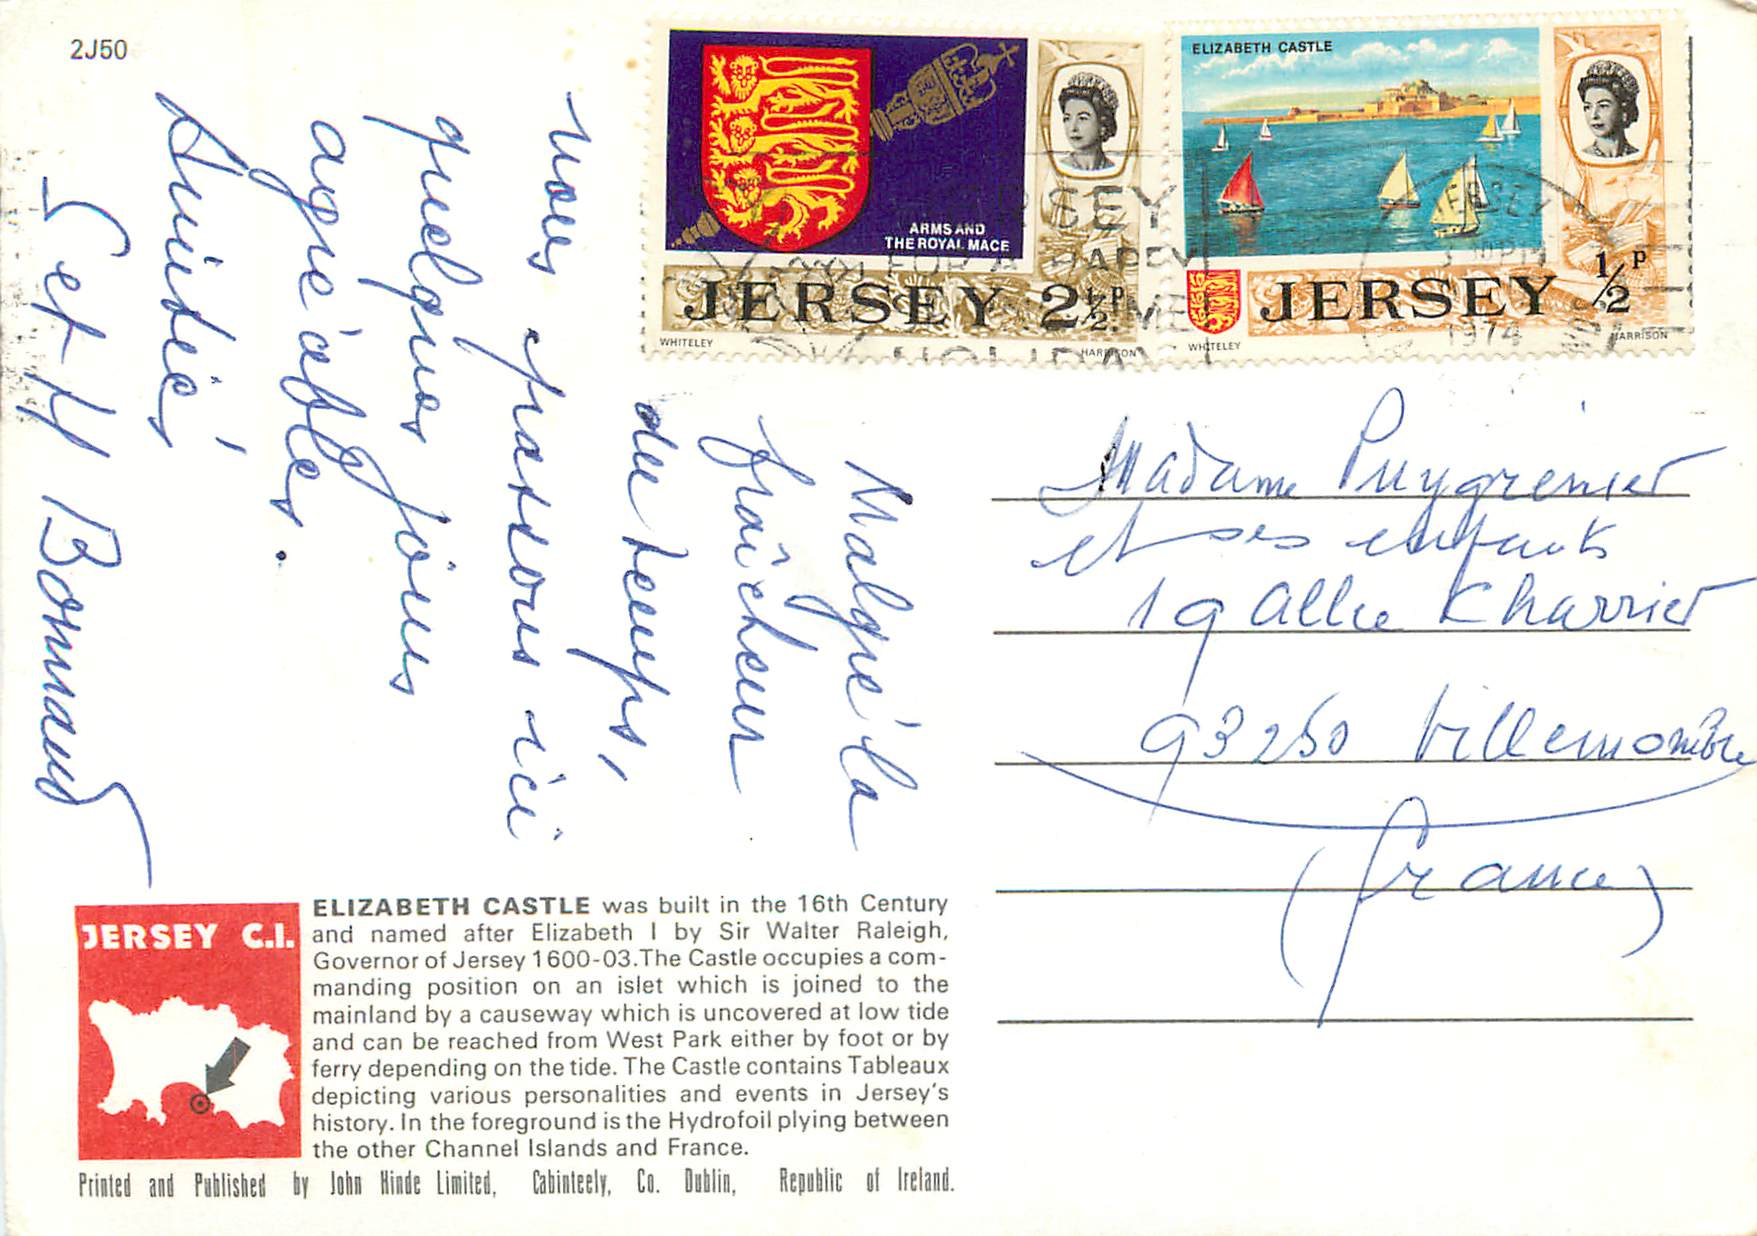 2J50
ARMS AND
THE ROYAL MACE
JERSEY 2½P
WHITELEY
HARRISON
ELIZABETH CASTLE
JERSEY ½P
WHITELEY
HARRISON
JERSEY
FOR A HAPPY
HOLIDAY
JERSEY
1974
Malgré la
fraîcheur
du temps,
nous passons ici
quelques jours
agréables.
Amitiés
et H Bonnaud
Madame Puygrenier
et ses enfants
19 allée Charrier
93250 Villemomble
(France)
JERSEY C.I.
ELIZABETH CASTLE was built in the 16th Century
and named after Elizabeth I by Sir Walter Raleigh,
Governor of Jersey 1600-03.The Castle occupies a com-
manding position on an islet which is joined to the
mainland by a causeway which is uncovered at low tide
and can be reached from West Park either by foot or by
ferry depending on the tide. The Castle contains Tableaux
depicting various personalities and events in Jersey's
history. In the foreground is the Hydrofoil plying between
the other Channel Islands and France.
Printed and Published by John Hinde Limited, Cabinteely, Co. Dublin, Republic of Ireland.